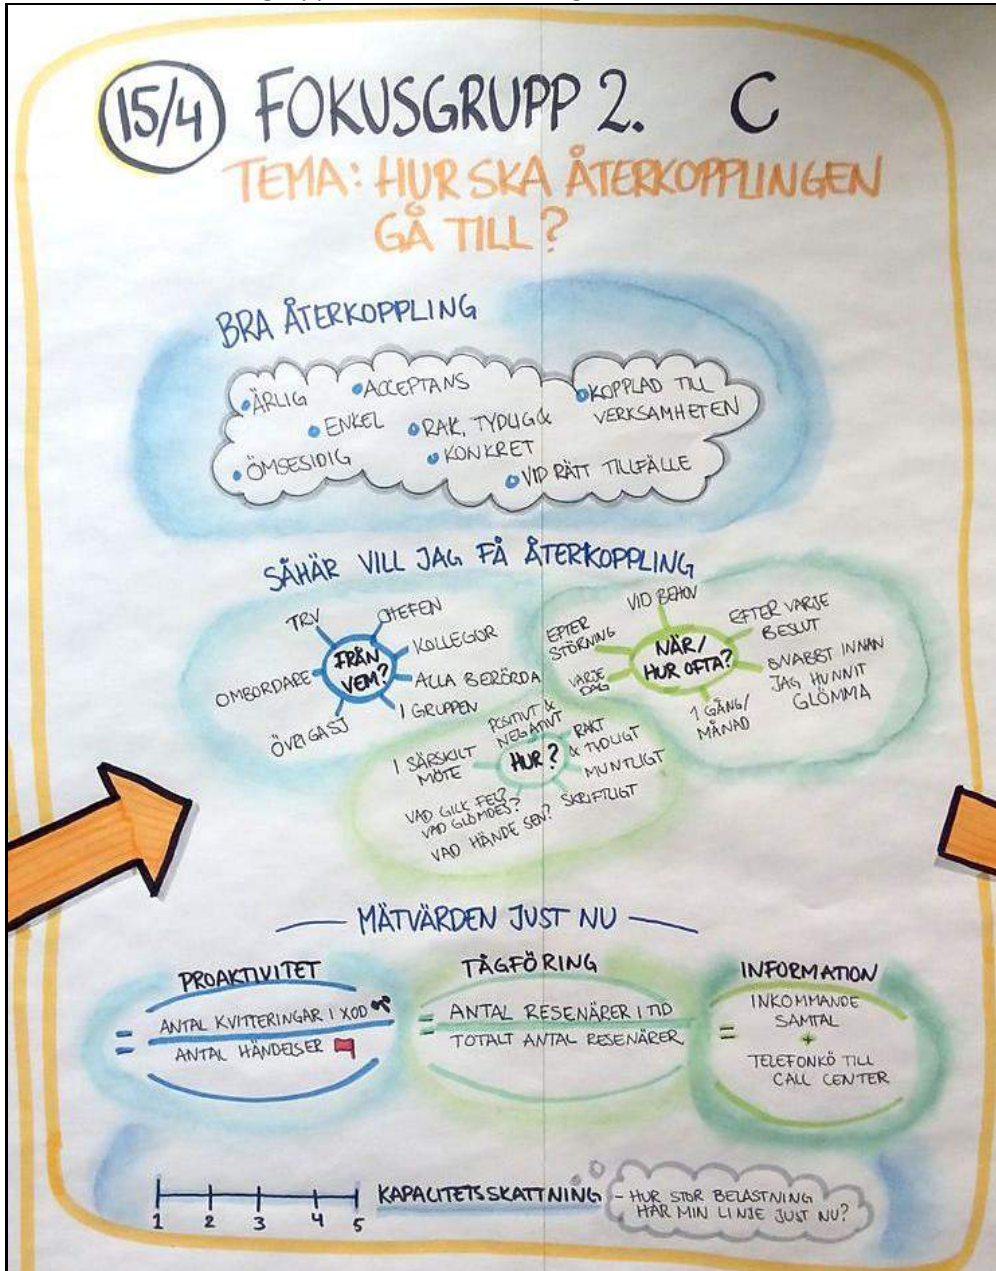 15/4 FOKUSGRUPP 2. C
TEMA: HUR SKA ÅTERKOPPLINGEN
GÅ TILL?
BRA ÅTERKOPPLING
• ÄRLIG
• ACCEPTANS
• KOPPLAD TILL
VERKSAMHETEN
• ENKEL
• RAK, TYDLIG &
• KONKRET
• ÖMSESIDIG
• VID RÄTT TILLFÄLLE
SÅHÄR VILL JAG FÅ ÅTERKOPPLING
FRÅN
VEM?
TRV
CHEFEN
KOLLEGOR
ALLA BERÖRDA
I GRUPPEN
ÖVRIGA SJ
OMBORDARE
NÄR/
HUR OFTA?
VID BEHOV
EFTER VARJE
BESLUT
SNABBT INNAN
JAG HUNNIT
GLÖMMA
1 GÅNG/
MÅNAD
VARJE
DAG
EFTER
STÖRNING
HUR?
POSITIVT &
NEGATIVT
RAKT
& TYDLIGT
MUNTLIGT
SKRIFTLIGT
VAD GICK FEL?
VAD GLÖMDES?
VAD HÄNDE SEN?
I SÄRSKILT
MÖTE
MÄTVÄRDEN JUST NU
PROAKTIVITET
= ANTAL KVITTERINGAR I XOD
ANTAL HÄNDELSER
TÅGFÖRING
= ANTAL RESENÄRER I TID
TOTALT ANTAL RESENÄRER
INFORMATION
= INKOMMANDE
SAMTAL
+
TELEFONKÖ TILL
CALL CENTER
1 2 3 4 5
KAPACITETSSKATTNING - HUR STOR BELASTNING
HAR MIN LINJE JUST NU?